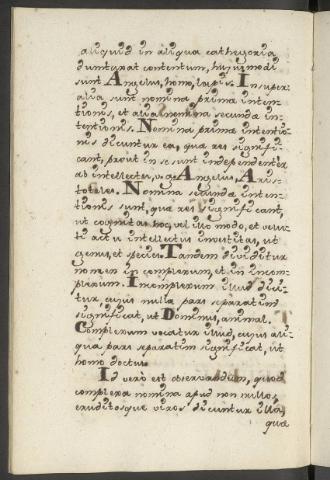 aliquid in aliqua cathegoria
duntaxat contentum, hujusmodi
sunt Angelus, homo, lapis. Insuper
alia sunt nomina prima inten-
tionis, et alia nomina secunda in-
tentionis. Nomina prima intentio-
nis dicuntur ea, qua res signifi-
cant, prout in se sunt independenter
ab intellectu, v.g. Angelus, Aris-
toteles. Nomina secunda inten-
tionis sunt, qua res significant,
ut cognitas hoc, vel illo modo, et velu-
ti actu intellectus investitas, ut
genus, et species. Tandem dividitur
nomen in complexum, et in incom-
plexum. Incomplexum illud dici-
tur cujus nulla pars separatim
significat, ut Dominus, animal.
Complexum vocatur illud, cujus ali-
qua pars separatim significat, ut
homo doctus.
Id verò est observandum, quod
complexa nomina apud non nullos,
eruditosque viros dicuntur illa,
quæ